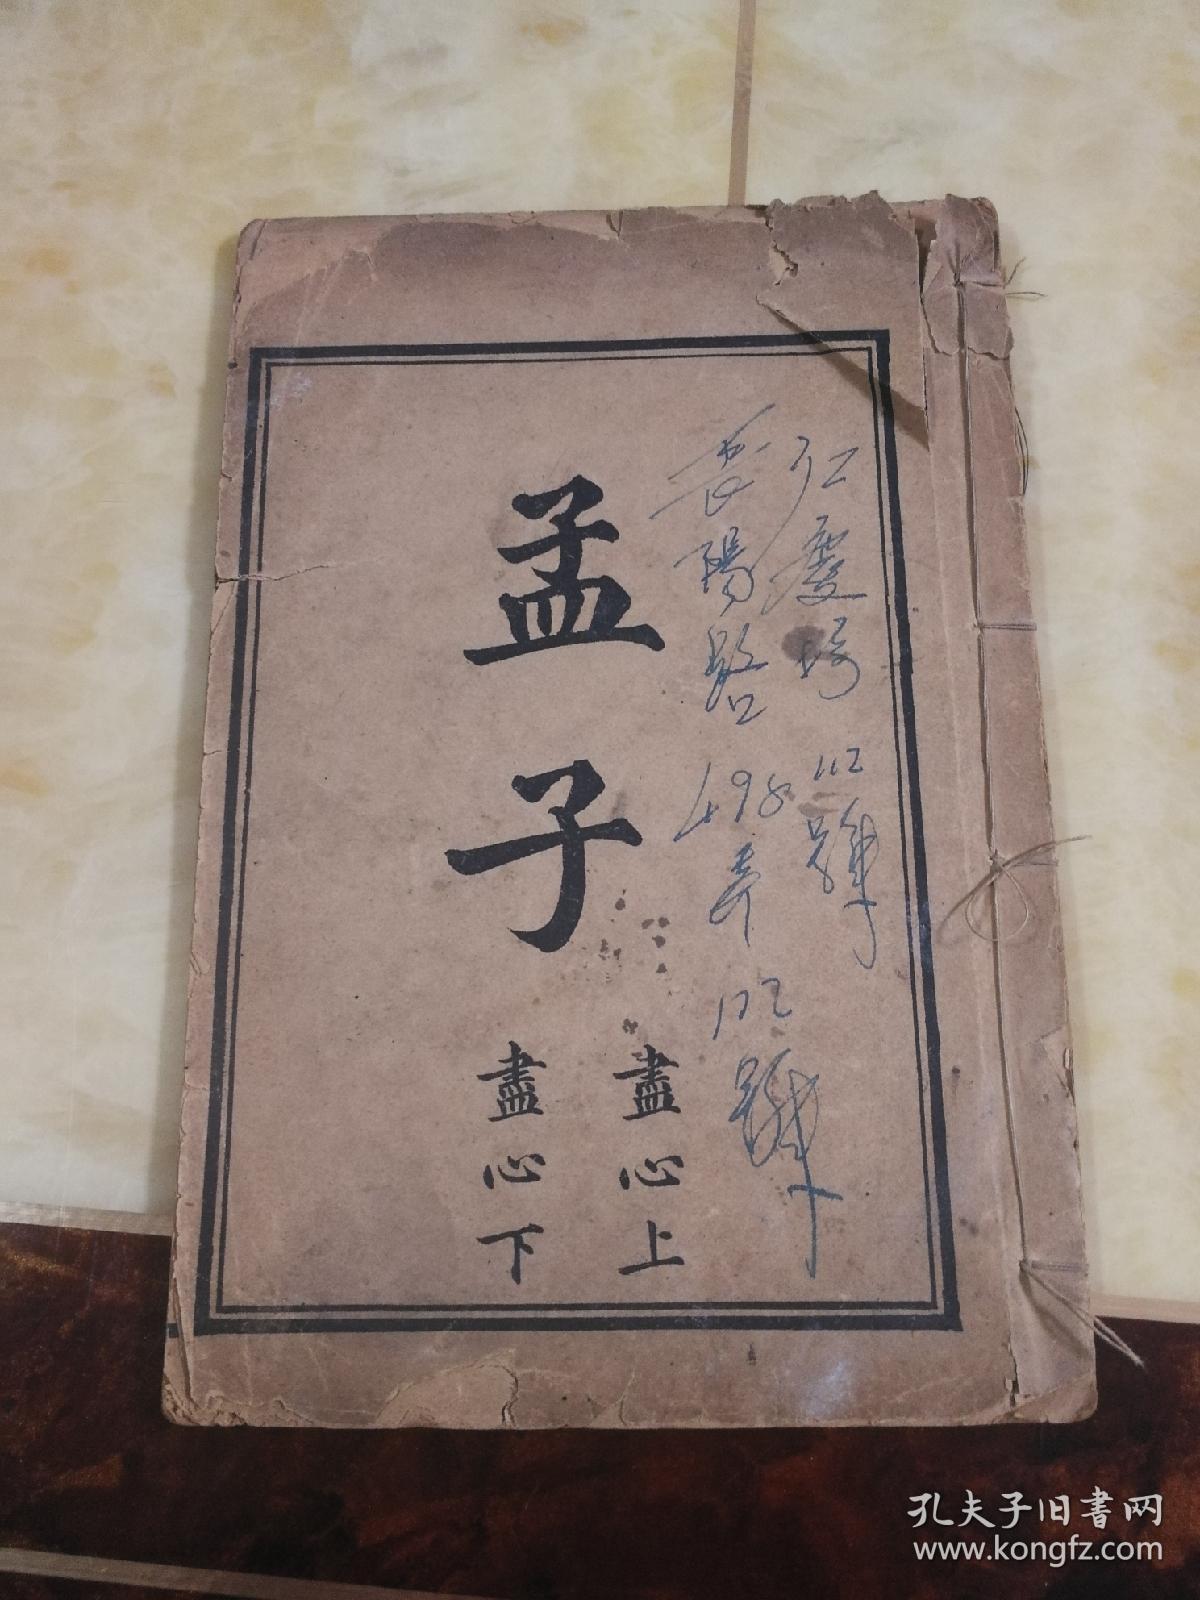 仁慶坊 112號
長陽路 498弄 112號
孟子
盡心上
盡心下
孔夫子旧書网
www.kongfz.com